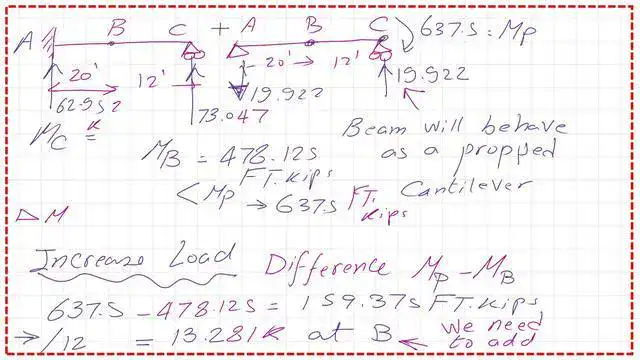 A B C + A B C 637.5 = Mp
20' 12' 20' 12'
62.952 73.047 19.922 19.922
Mc k =
Beam will behave
as a propped
Cantilever
MB = 478.125
FT.Kips
< Mp → 637.5 FT.
Kips
△ M
Increase Load Difference Mp - MB
637.5 - 478.125 = 159.375 FT.Kips
→ /12 = 13.281K at B ← We need
to add